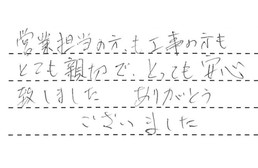 営業担当の方も工事の方も
とても親切で、とっても安心
致しました ありがとう
ございました